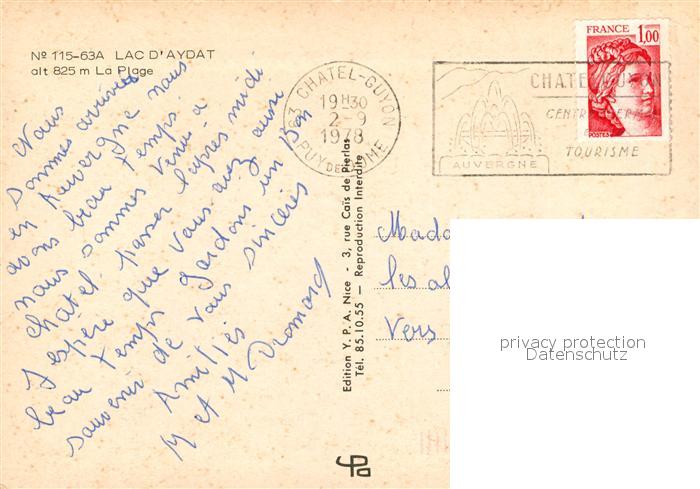 Nº 115-63A LAC D'AYDAT
alt 825 m La Plage
Nous
sommes arrivés
en Auvergne nous
avons beau temps.
nous sommes venus à
Chatel. passer l'après midi
J'espère que vous avez aussi
beau temps Gardons un Bon
souvenir de vous sincères
Amitiés
M et M Dromard
63 CHATEL-GUYON
19H30
2-9
1978
PUY DE DOME
CHATEL-GUYON
CENTRE THERMAL
TOURISME
AUVERGNE
FRANCE
1,00
POSTES
Edition Y. P. A. Nice - 3, rue Caïs de Pierlas
Tél. 85.10.55 - Reproduction Interdite
Mada
les al
Vers
privacy protection
Datenschutz